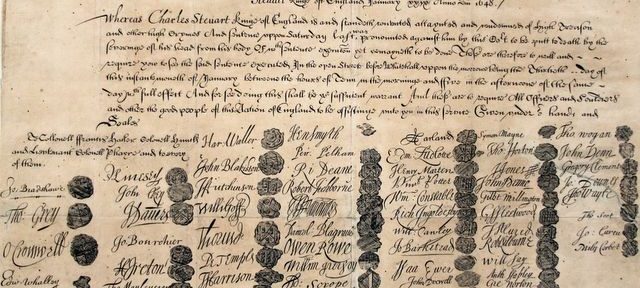 Steuart Kinge of England January xxixth Anno Dm 1648
Whereas Charles Steuart Kinge of England is and standeth convicted attaynted and condemned of High Treason
and other high Crymes And Sentence uppon Saturday last was pronounced against him by this Cort to be putt to death by the
severinge of his head from his body Of wch Sentence execucon yet remayneth to be done These are therefore to will and
require you to see the said Sentence executed In the open Streete before Whitehall uppon the morrowe being the Thirtieth day of
this instante moneth of January betweene the houres of Tenn in the morninge and Five in the afternoone of the same
day wth full effect And for soe doing this shall be your sufficient warrant And these are to require All Officers and Souldiers
and other the good people of this Nation of England to be assistinge unto you in this service Given under our hands and
Seales
To Collonell ffrancis Hacker Colonell Huncks
and Lieutenant Colonell Phayre and to every
of them.
Jo: Bradshawe
Tho: Grey
O Cromwell
Edw: Whalley
M Livesey
John Okey
J Danvers
Jo Bourchier
H Ireton
Har Waller
John Blakiston
J Hutchinson
Willi Goff
P Temple
T Harrison
Hen Smyth
Per Pelham
Ri Deane
Robert Tichborne
Daniel Blagrave
Owen Rowe
Ad: Scrope
James Temple
A Garland
Edm Ludlowe
Henry Marten
Vinct Potter
Wm: Constable
Rich Ingoldesby
Will Cawley
Jo Barkstead
Isaa Ewer
John Dixwell
Symon Mayne
Tho Horton
J Jones
John Moore
Gilbt Millington
G Fleetwood
J Alured
Robt Lilburne
Will Say
Anth Stapley
Gre Norton
Tho Wogan
John Venn
Gregory Clement
Jo: Downes
Tho Wayte
Tho Scot
Jo: Carew
Miles Corbet